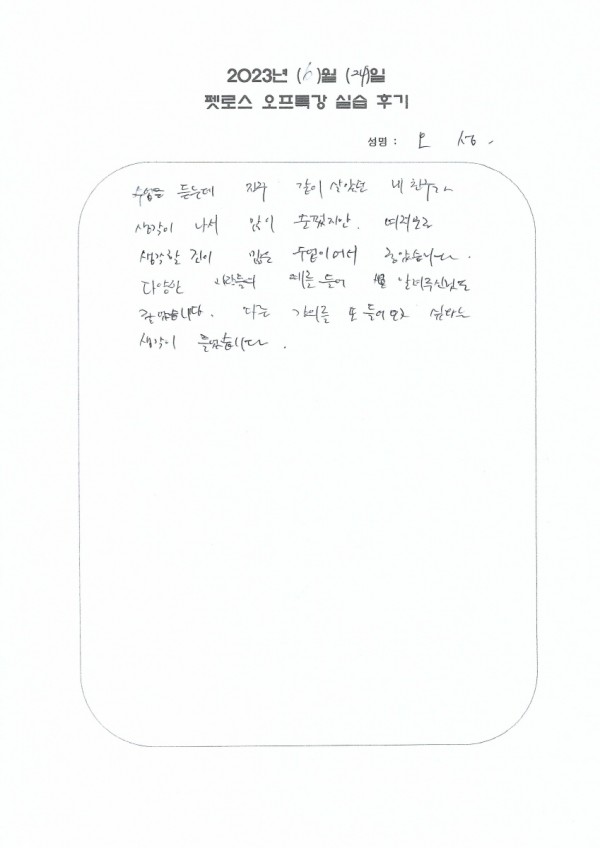 2023년 (6)월 (24)일
펫로스 오프특강 실습 후기
성명 : 오 성
수업을 듣는데 자꾸 같이 살았던 내 친구가
생각이 나서 맘이 슬펐지만, 여러모로
생각할 것이 많은 수업이어서 좋았습니다.
다양한 사람들의 예를 들어 알려주신
좋았습니다. 다른 강의를 또 들어보고 싶다는
생각이 들었습니다.